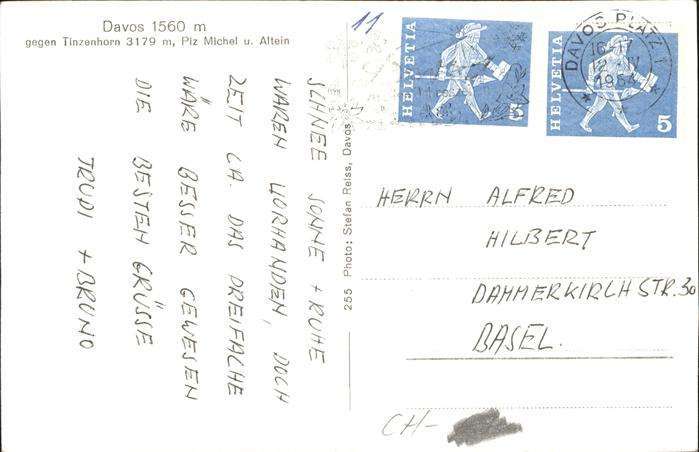 Davos 1560 m
gegen Tinzenhorn 3179 m, Piz Michel u. Altein
11
HELVETIA
5
HELVETIA
5
DAVOS PLATZ 1
16-17
1964
SCHNEE SONNE + RUHE
WAREN VORHANDEN, DOCH
ZEIT CA. DAS DREIFACHE
WÄRE BESSER GEWESEN
DIE BESTEN GRÜSSE
TRUDI + BRUNO
255 Photo: Stefan Reiss, Davos
HERRN ALFRED
HILBERT
DAMMERKIRCHSTR. 30
BASEL.
CH-